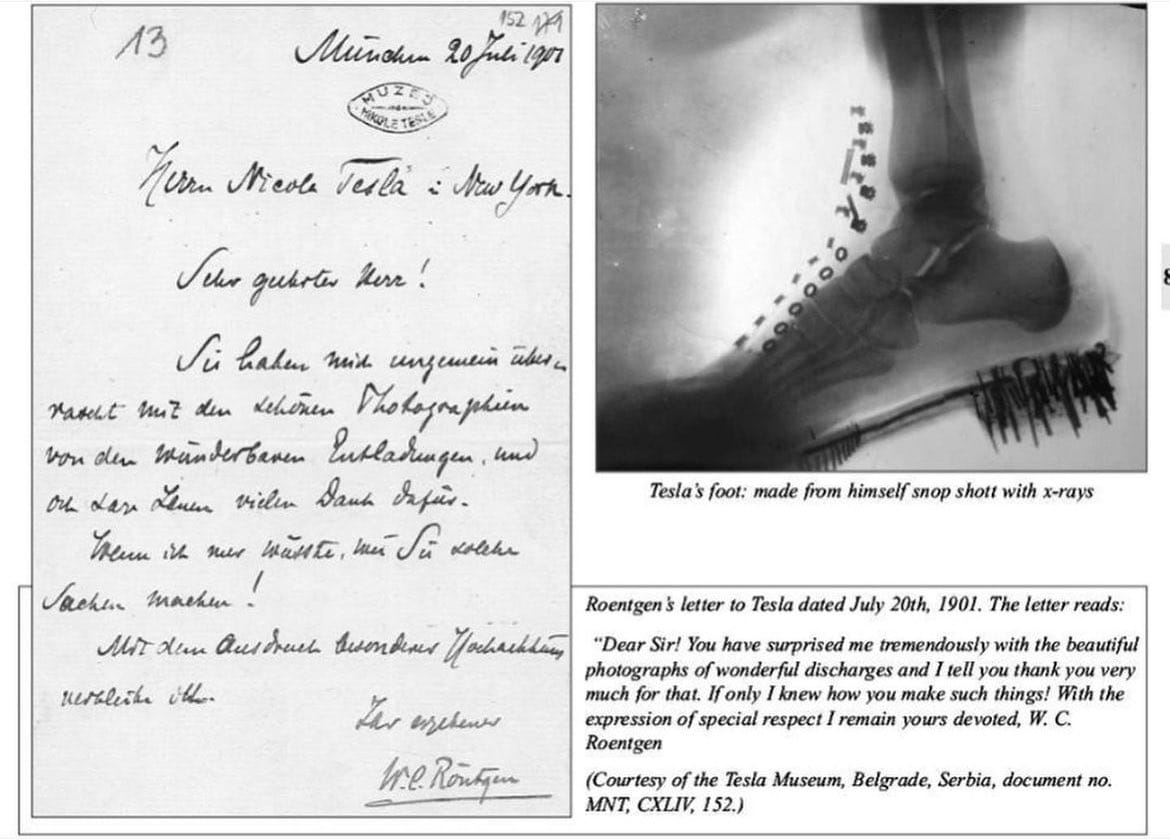 13
152 179
München 20 Juli 1901
MUZEJ
NIKOLE TESLE
Herrn Nicola Tesla i New York.
Sehr geehrter Herr!
Sie haben mich ungemein über-
rascht mit den schönen Photographien
von den wunderbaren Entladungen, und
ich sage Ihnen vielen Dank dafür.
Wenn ich nur wüsste, wie Sie solche
Sachen machen!
Mit dem Ausdruck besonderer Hochachtung
verbleibe ich
Ihr ergebener
W.C. Röntgen
Tesla's foot: made from himself snop shott with x-rays
Roentgen's letter to Tesla dated July 20th, 1901. The letter reads:
“Dear Sir! You have surprised me tremendously with the beautiful
photographs of wonderful discharges and I tell you thank you very
much for that. If only I knew how you make such things! With the
expression of special respect I remain yours devoted, W. C.
Roentgen
(Courtesy of the Tesla Museum, Belgrade, Serbia, document no.
MNT, CXLIV, 152.)